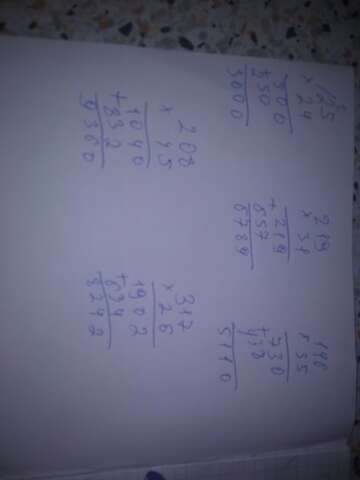 125
× 24
500
+250
3000
219
× 31
+219
657
6789
146
× 35
730
+438
5110
208
× 45
1040
+832
9360
317
× 26
1902
+634
8242